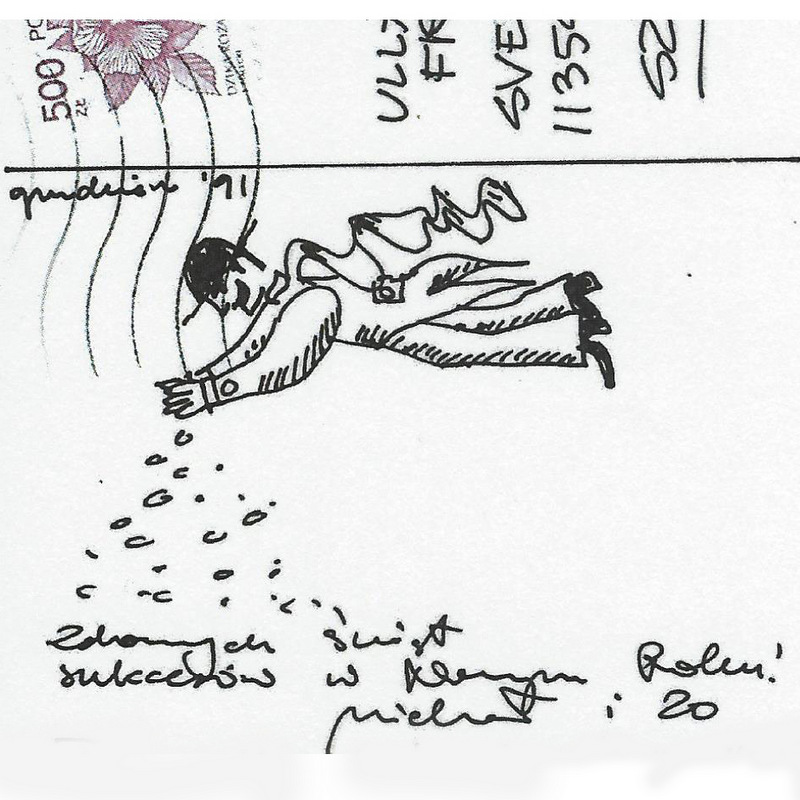 500
ZŁ
PO
DZIKA RÓŻA
ULL
FR
SVE
1135
SZ
grudzień '91
Zdrowych świąt
sukcesów w Nowym Roku!
Michał i Zo